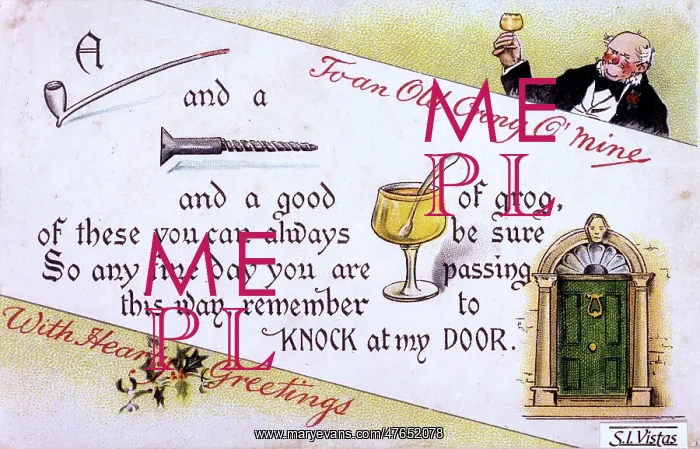 To an Old Crony O' Mine
A
and a
and a good of grog,
of these you can always be sure
So any fine day you are passing
this way remember to
KNOCK at my DOOR.
With Hearty Greetings
S.I. Vistas
ME
PL
ME
PL
www.maryevans.com/47652078